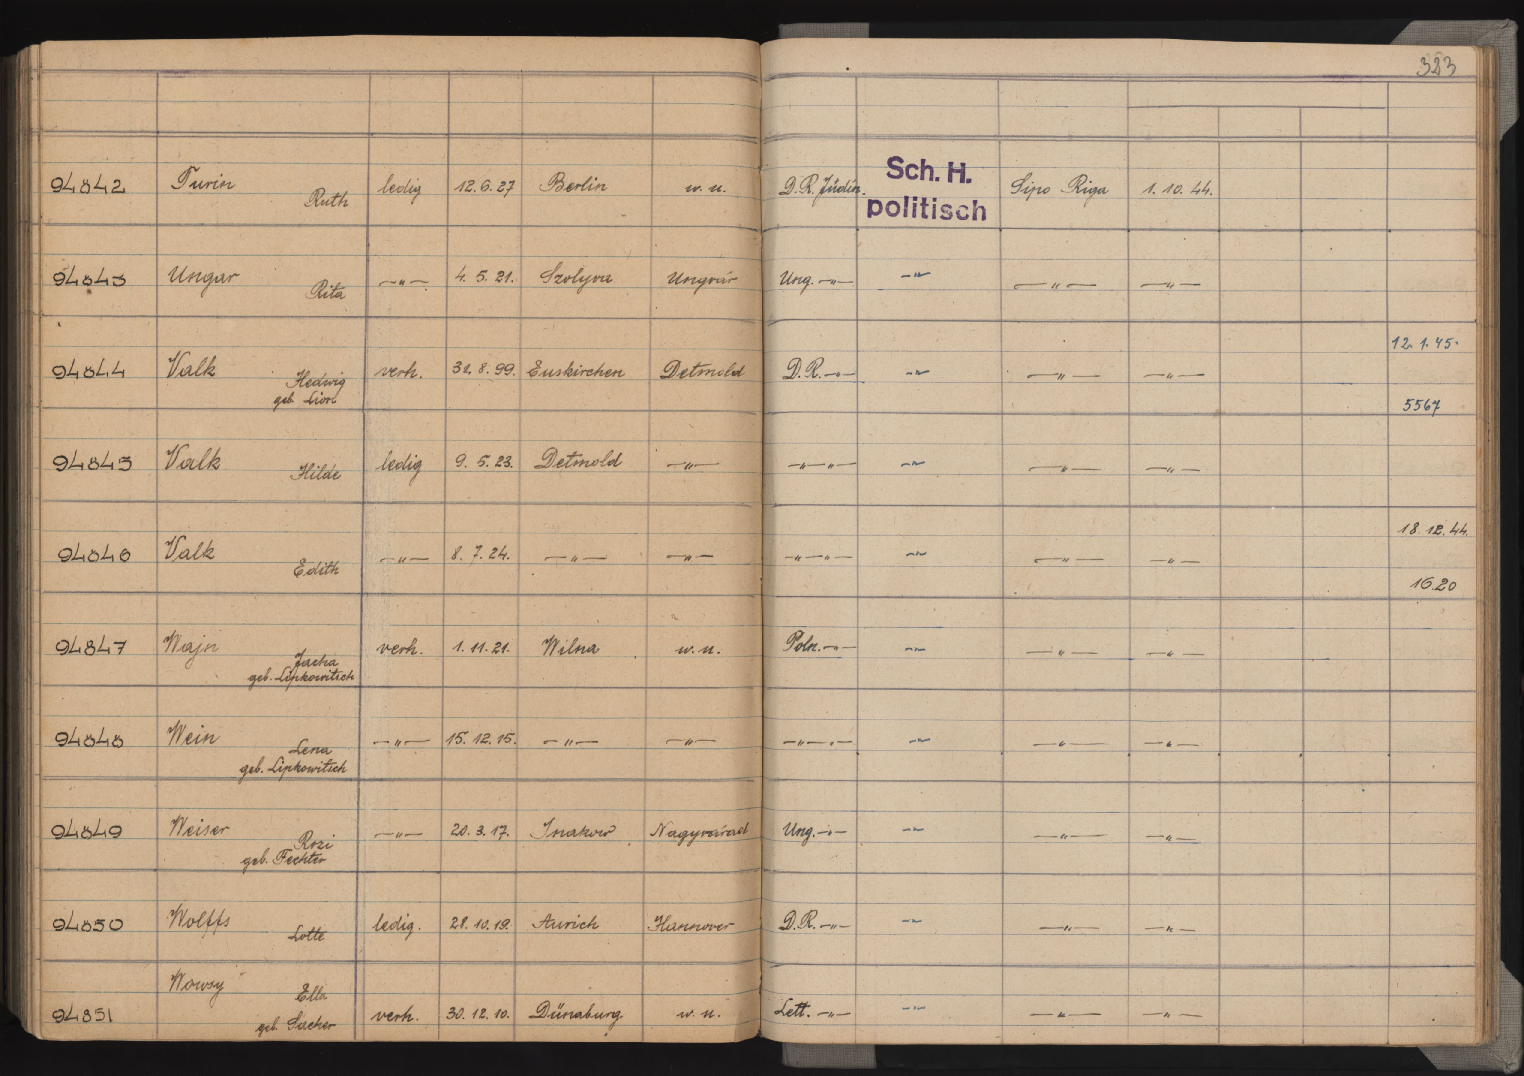 323
94842 Turin Ruth ledig 12.6.27 Berlin w. u. D.R. Jüdin. Sch. H. politisch Sipo Riga 1.10.44.
94843 Ungar Rita —"— 4.5.21. Szolyva Ungvár Ung. —"— —"— —"— —"—
12.1.45.
94844 Valk Hedwig geb. Lion verh. 31.8.99. Euskirchen Detmold D.R. —"— —"— —"— —"—
5567
94845 Valk Hilde ledig 9.5.23. Detmold —"— —"—"— —"— —"— —"—
18.12.44.
94846 Valk Edith —"— 8.7.24. —"— —"— —"—"— —"— —"— —"—
1620
94847 Wajn Jacha geb. Lipkowitsch verh. 1.11.21. Wilna w. u. Poln. —"— —"— —"— —"—
94848 Wein Lena geb. Lipkowitsch —"— 15.12.15. —"— —"— —"—"— —"— —"— —"—
94849 Weiser Rozi geb. Fechter —"— 20.3.17. Inakow Nagyvárad Ung. —"— —"— —"— —"—
94850 Wolffs Lotte ledig. 28.10.19. Aurich Hannover D.R. —"— —"— —"— —"—
94851 Wowsy Ella geb. Sacher verh. 30.12.10. Dünaburg. w. u. Lett. —"— —"— —"— —"—